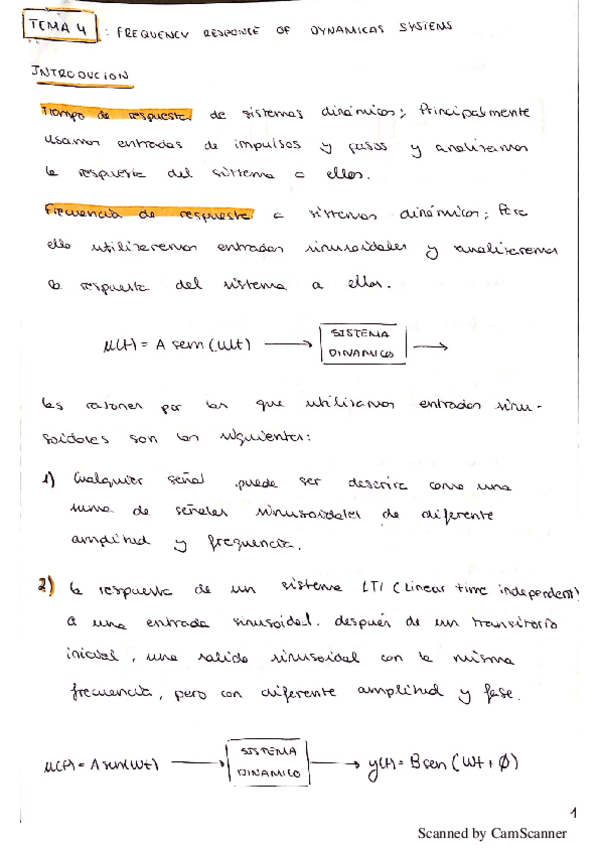 TEMA 4 : FREQUENCY RESPONCE OF DYNAMICAS SYSTEMS
INTRODUCION
Tiempo de respuesta de sistemas dinámicos; Principalmente
usamos entradas de impulsos y pasos y analizamos
la respuesta del sistema a ellos.
Frecuencia de respuesta a sistemas dinámicos; Para
ello utilizaremos entradas sinusoidales y analizaremos
la respuesta del sistema a ellos.
μ(t) = A sem (ωt)
SISTEMA
DINAMICO
Las razones por las que utilizamos entradas sinu-
soidales son las siguientes:
1) Cualquier señal puede ser descrita como una
suma de señales sinusoidales de diferente
amplitud y frequencia.
2) la respuesta de un sistema LTI (Linear time independent)
a una entrada sinusoidal. después de un transitorio
inicial, una salida sinusoidal con la misma
frecuencia, pero con diferente amplitud y fase.
μ(t) = A sen(ωt)
SISTEMA
DINAMICO
y(t) = B sen (ωt + Ø)
1
Scanned by CamScanner